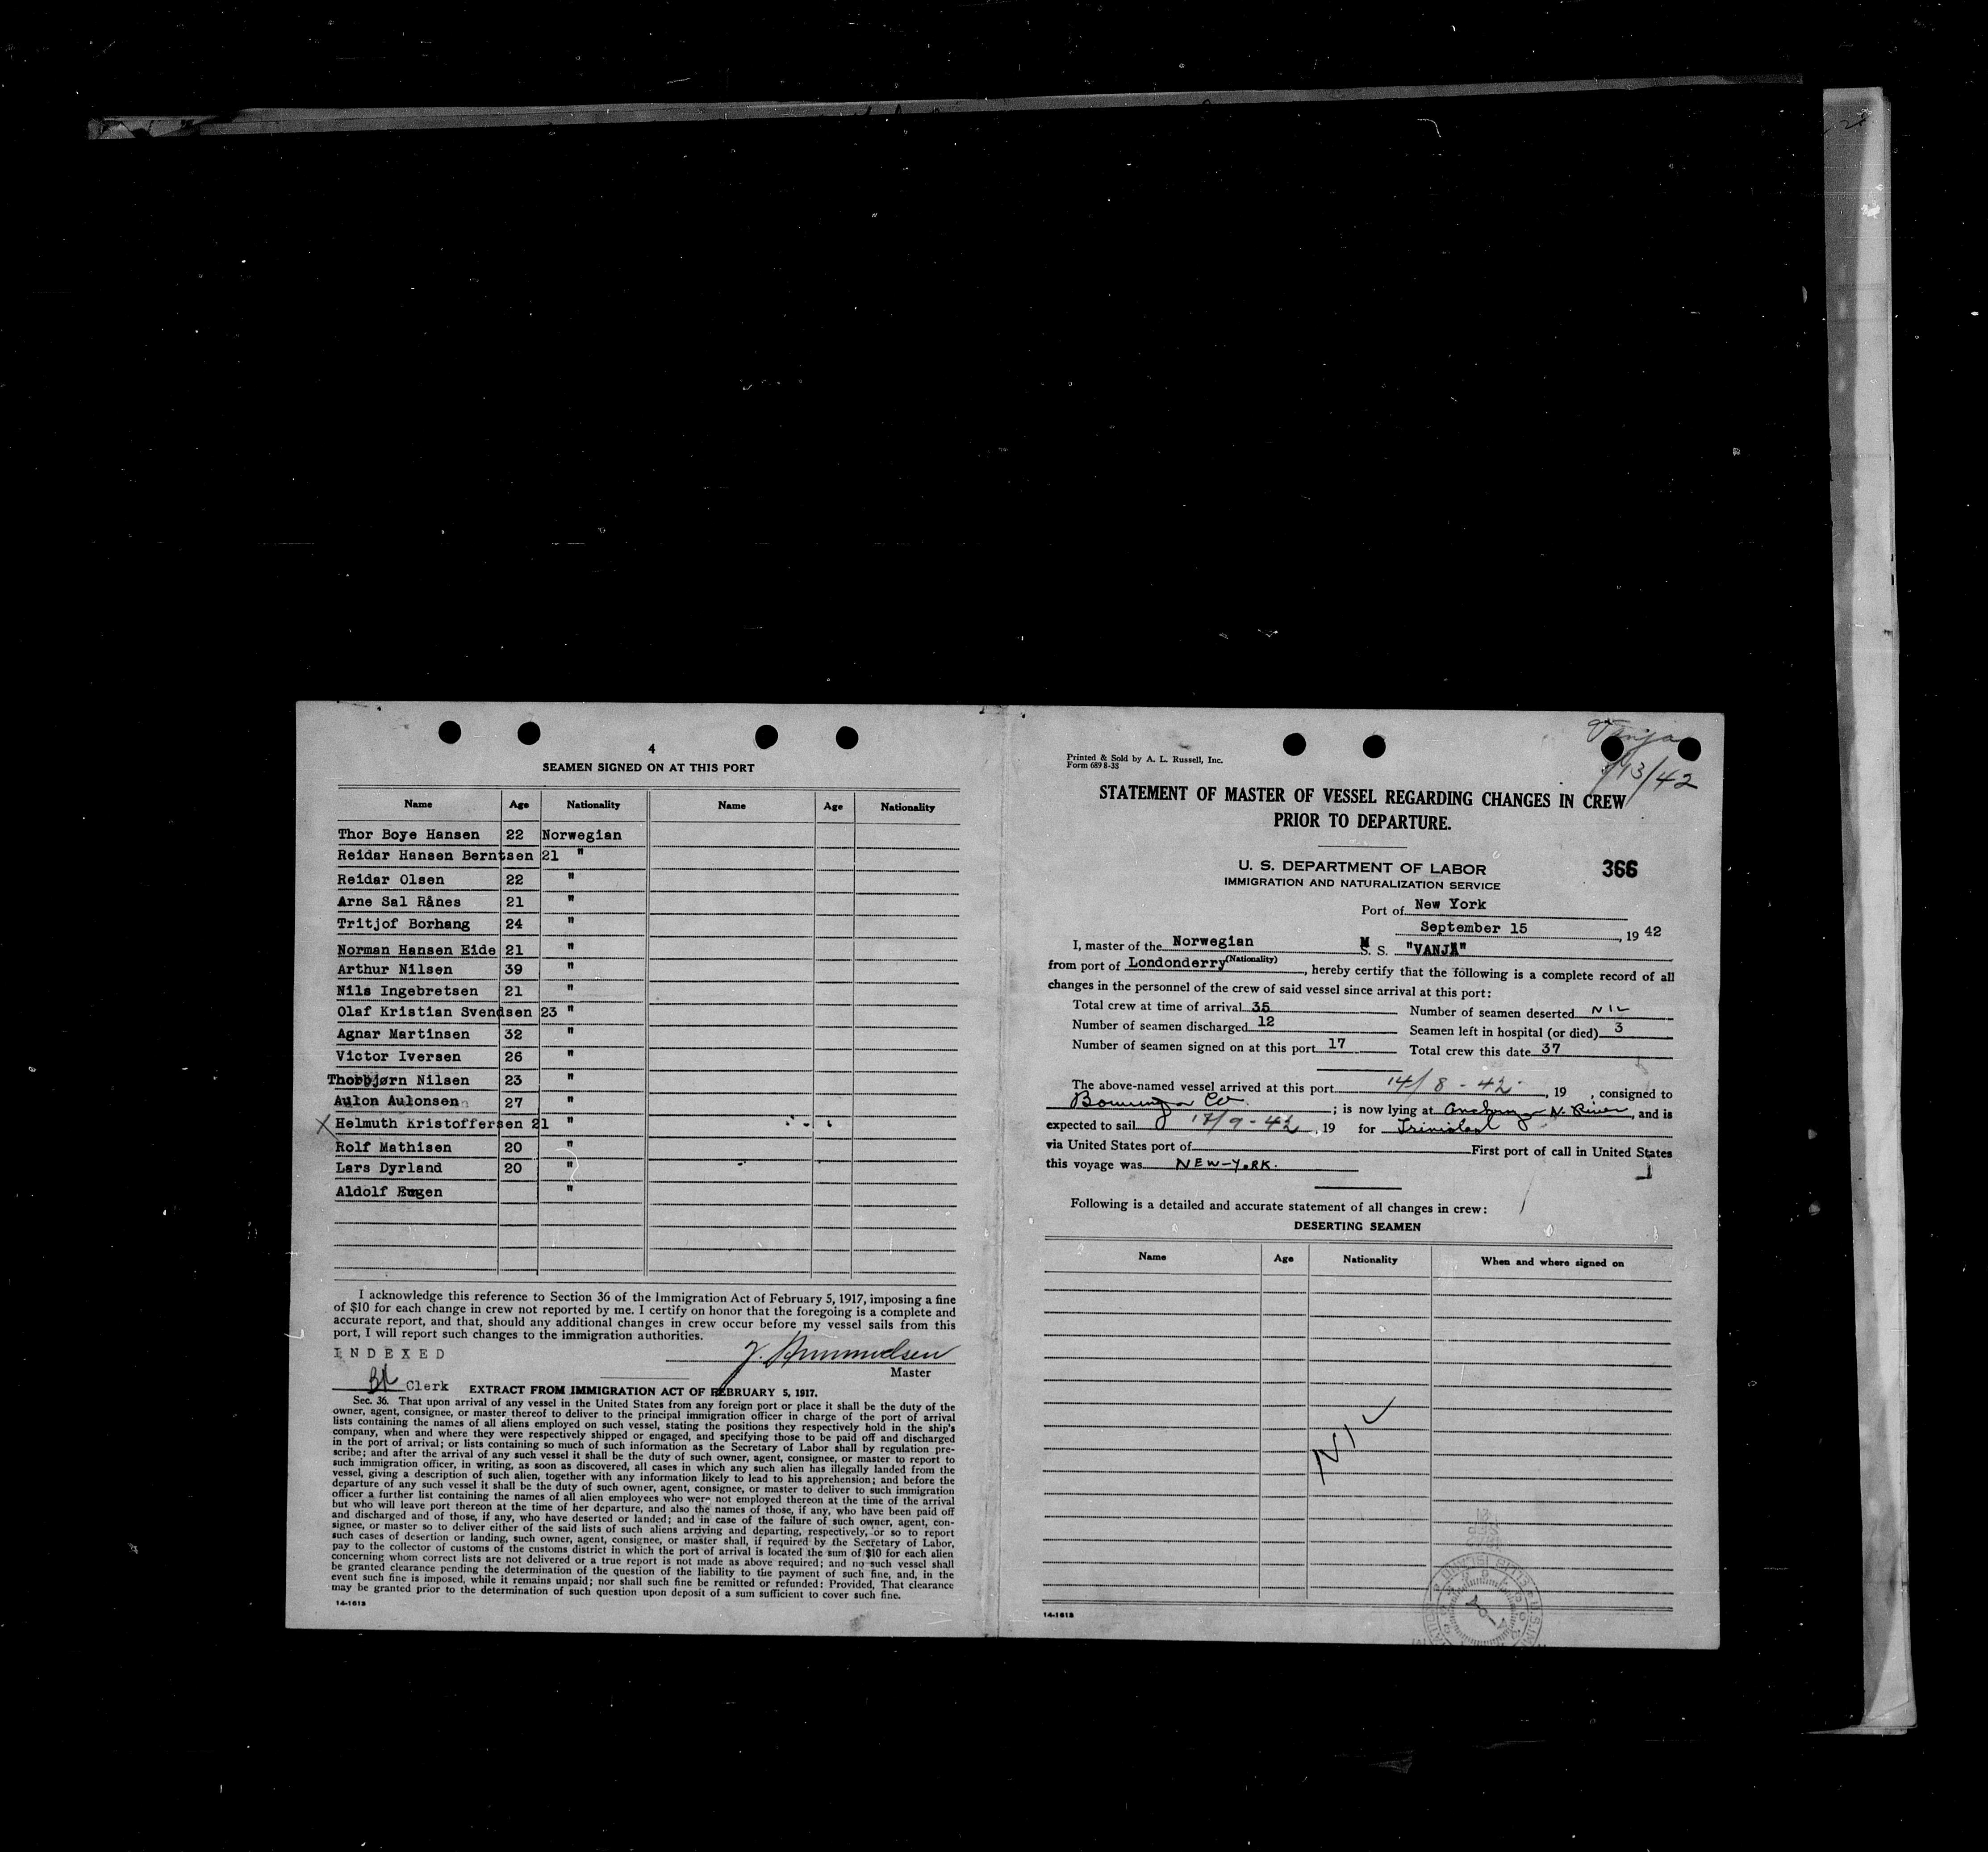 4
SEAMEN SIGNED ON AT THIS PORT
Name Age Nationality Name Age Nationality
Thor Boye Hansen 22 Norwegian
Reidar Hansen Berntsen 21 "
Reidar Olsen 22 "
Arne Sal Rånes 21 "
Tritjof Borhang 24 "
Norman Hansen Eide 21 "
Arthur Nilsen 39 "
Nils Ingebretsen 21 "
Olaf Kristian Svendsen 23 "
Agnar Martinsen 32 "
Victor Iversen 26 "
Thorbjørn Nilsen 23 "
Aulon Aulonsen 27 "
X Helmuth Kristoffersen 21 "
Rolf Mathisen 20 "
Lars Dyrland 20 "
Aldolf Eugen "
I acknowledge this reference to Section 36 of the Immigration Act of February 5, 1917, imposing a fine
of $10 for each change in crew not reported by me. I certify on honor that the foregoing is a complete and
accurate report, and that, should any additional changes in crew occur before my vessel sails from this
port, I will report such changes to the immigration authorities.
INDEXED
Master
Clerk EXTRACT FROM IMMIGRATION ACT OF FEBRUARY 5, 1917.
Sec. 36. That upon arrival of any vessel in the United States from any foreign port or place it shall be the duty of the
owner, agent, consignee, or master thereof to deliver to the principal immigration officer in charge of the port of arrival
lists containing the names of all aliens employed on such vessel, stating the positions they respectively hold in the ship's
company, when and where they were respectively shipped or engaged, and specifying those to be paid off and discharged
in the port of arrival; or lists containing so much of such information as the Secretary of Labor shall by regulation pre-
scribe; and after the arrival of any such vessel it shall be the duty of such owner, agent, consignee, or master to report to
such immigration officer, in writing, as soon as discovered, all cases in which any such alien has illegally landed from the
vessel, giving a description of such alien, together with any information likely to lead to his apprehension; and before the
departure of any such vessel it shall be the duty of such owner, agent, consignee, or master to deliver to such immigration
officer a further list containing the names of all alien employees who were not employed thereon at the time of the arrival
but who will leave port thereon at the time of her departure, and also the names of those, if any, who have been paid off
and discharged and of those, if any, who have deserted or landed; and in case of the failure of such owner, agent, con-
signee, or master so to deliver either of the said lists of such aliens arriving and departing, respectively, or so to report
such cases of desertion or landing, such owner, agent, consignee, or master shall, if required by the Secretary of Labor,
pay to the collector of customs of the customs district in which the port of arrival is located the sum of $10 for each alien
concerning whom correct lists are not delivered or a true report is not made as above required; and no such vessel shall
be granted clearance pending the determination of the question of the liability to the payment of such fine, and, in the
event such fine is imposed, while it remains unpaid; nor shall such fine be remitted or refunded: Provided, That clearance
may be granted prior to the determination of such question upon deposit of a sum sufficient to cover such fine.
14-1618
Vanja
/13/42
Printed & Sold by A. L. Russell, Inc.
Form 689 8-38
STATEMENT OF MASTER OF VESSEL REGARDING CHANGES IN CREW
PRIOR TO DEPARTURE.
U. S. DEPARTMENT OF LABOR
IMMIGRATION AND NATURALIZATION SERVICE
366
Port of New York
September 15, 19 42
I, master of the Norwegian M S. "VANJA"
(Nationality)
from port of Londonderry, hereby certify that the following is a complete record of all
changes in the personnel of the crew of said vessel since arrival at this port:
Total crew at time of arrival 35 Number of seamen deserted NIL
Number of seamen discharged 12 Seamen left in hospital (or died) 3
Number of seamen signed on at this port 17 Total crew this date 37
The above-named vessel arrived at this port 14/8-42, 19 , consigned to
Co ; is now lying at Anchorage N. River, and is
expected to sail 17/9-42, 19 for Trinidad
via United States port of First port of call in United States
this voyage was NEW-YORK.
Following is a detailed and accurate statement of all changes in crew:
DESERTING SEAMEN
Name Age Nationality When and where signed on
NIL
14-1618